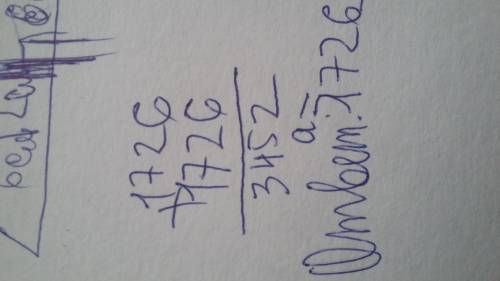 1726
+1726
3452
Ответ: а=1726